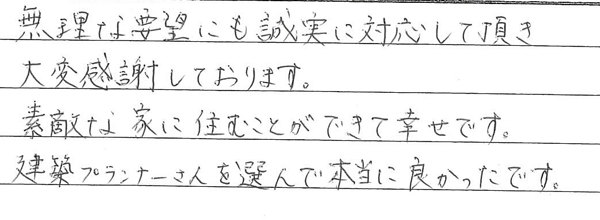 無理な要望にも誠実に対応して頂き
大変感謝しております。
素敵な家に住むことができて幸せです。
建築プランナーさんを選んで本当に良かったです。